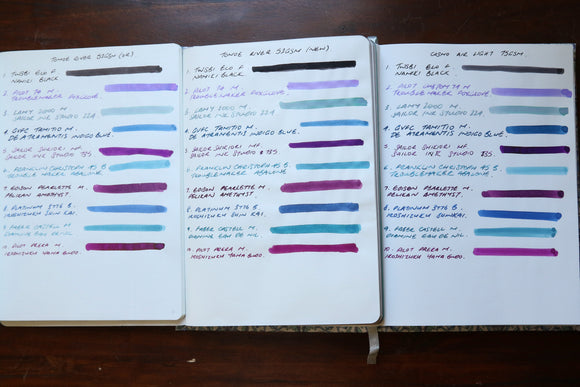 TOMOE RIVER 52GSM (OLD)
1. TWSBI ECO F
NAMIKI BLACK
2. PILOT 74 M
TROUBLEMAKER FOXGLOVE
3. LAMY 2000 M
SAILOR INK STUDIO 224
4. GVFC TAMITIO M
DE ATRAMENTIS INDIGO BLUE.
5. SAILOR SHIKIORI MF
SAILOR INK STUDIO 935
6. FRANKLIN CHRISTOPH 45 B.
TROUBLEMAKER ABALONE
7. EDISON PEARLETTE M.
PELIKAN AMETHYST
8. PLATINUM 3776 B
IROSHIZUKU SHIN KAI.
9. FABER CASTELL M
DIAMINE EAU DE NIL.
10. PILOT PRERA M.
IROSHIZUKU YAMA BUDO.
TOMOE RIVER 52GSM (NEW)
1. TWSBI ECO F
NAMIKI BLACK.
2. PILOT 74 M
TROUBLEMAKER FOXGLOVE
3. LAMY 2000 M
SAILOR INK STUDIO 224.
4. GVFC TAMITIO M
DE ATRAMENTIS INDIGO BLUE.
5. SAILOR SHIKIORI MF
SAILOR INK STUDIO 935
6. FRANKLIN CHRISTOPH 45 B.
TROUBLEMAKER ABALONE
7. EDISON PEARLETTE M.
PELIKAN AMETHYST.
8. PLATINUM 3776 B.
IROSHIZUKU SHIN KAI.
9. FABER CASTELL M.
DIAMINE EAU DE NIL.
10. PILOT PRERA M.
IROSHIZUKU YAMA BUDO.
COSMO AIR LIGHT 75GSM.
1. TWSBI ECO F
NAMIKI BLACK.
2. PILOT CUSTOM 74 M
TROUBLEMAKER FOXGLOVE
3. LAMY 2000 M
SAILOR INK STUDIO 224.
4. GVFC TAMITIO M
DE ATRAMENTIS INDIGO BLUE.
5. SAILOR SHIKIORI MF
SAILOR INK STUDIO 935
6. FRANKLIN CHRISTOPH 45 B
TROUBLEMAKER ABALONE
7. EDISON PEARLETTE M.
PELIKAN AMETHYST.
8. PLATINUM 3776 B.
IROSHIZUKU SHINKAI.
9. FABER CASTELL M.
DIAMINE EAU DE NIL.
10. PILOT PRERA M.
IROSHIZUKU YAMA BUDO.